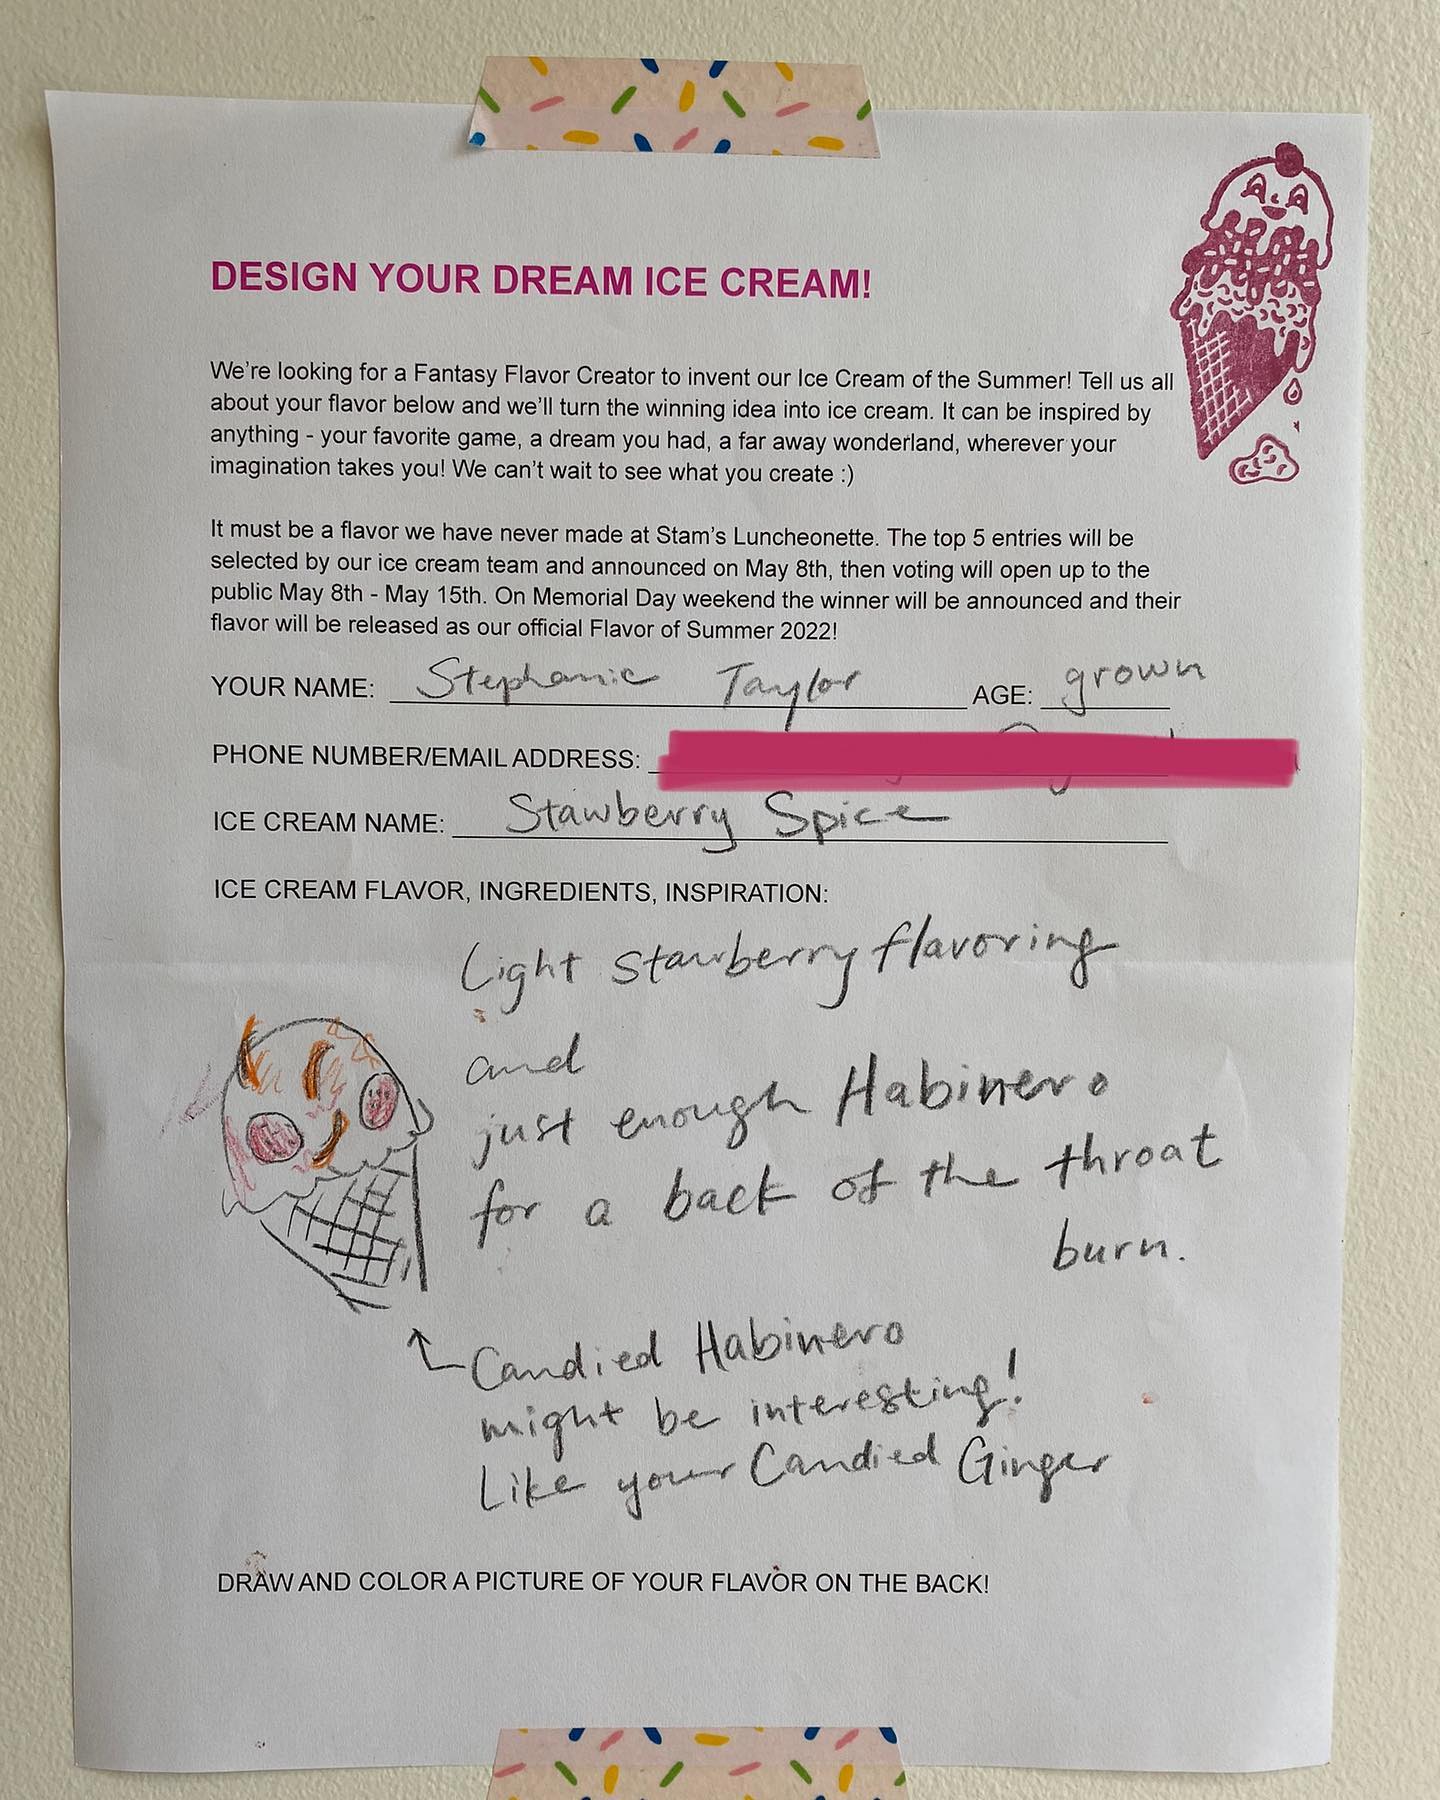 DESIGN YOUR DREAM ICE CREAM!
We're looking for a Fantasy Flavor Creator to invent our Ice Cream of the Summer! Tell us all
about your flavor below and we'll turn the winning idea into ice cream. It can be inspired by
anything - your favorite game, a dream you had, a far away wonderland, wherever your
imagination takes you! We can't wait to see what you create :)
It must be a flavor we have never made at Stam's Luncheonette. The top 5 entries will be
selected by our ice cream team and announced on May 8th, then voting will open up to the
public May 8th - May 15th. On Memorial Day weekend the winner will be announced and their
flavor will be released as our official Flavor of Summer 2022!
YOUR NAME: Stephanie Taylor AGE: grown
PHONE NUMBER/EMAIL ADDRESS:
ICE CREAM NAME: Stawberry Spice
ICE CREAM FLAVOR, INGREDIENTS, INSPIRATION:
Light stawberry flavoring
and
just enough Habinero
for a back of the throat
burn.
Candied Habinero
might be interesting!
Like your Candied Ginger
DRAW AND COLOR A PICTURE OF YOUR FLAVOR ON THE BACK!